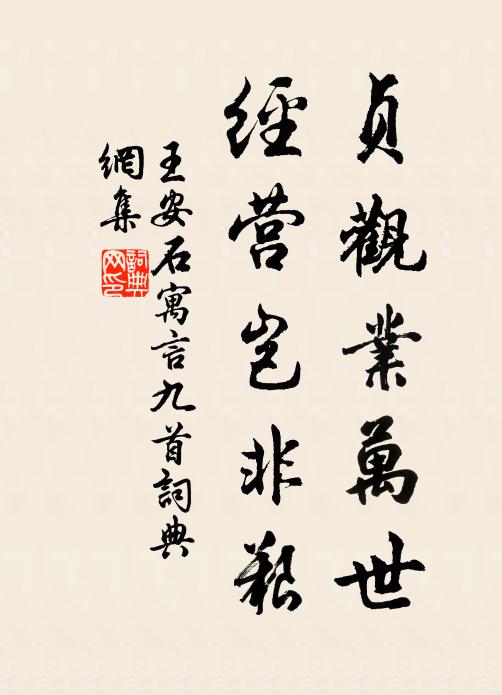 貞觀業萬世
經营豈非艱
王安石寓言九首詞典
網集
詞典
网印